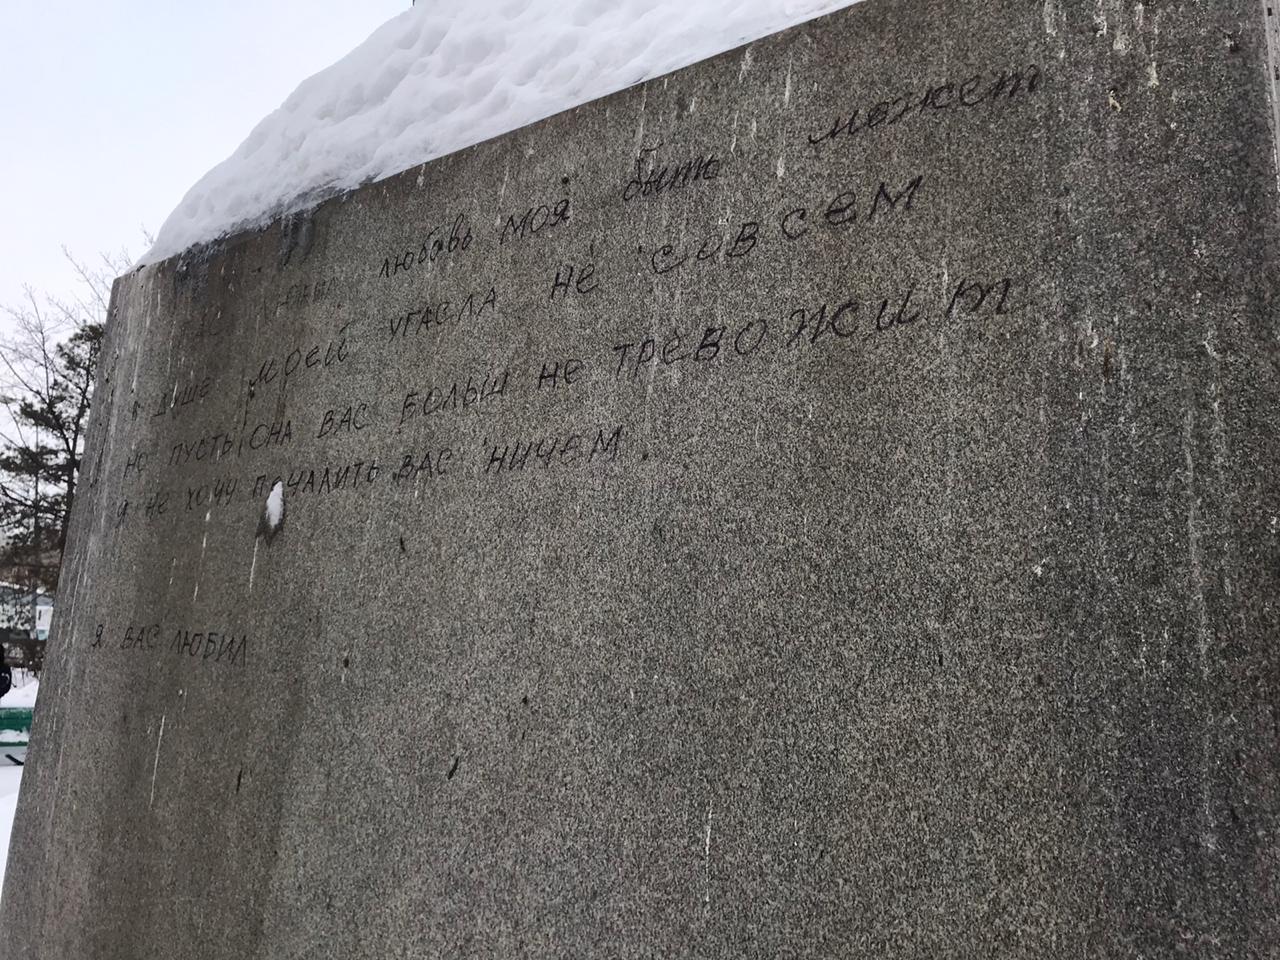 любовь моя быть может
в душе моей угасла не совсем
но пусть она вас больш не тревожит
я не хочу печалить вас ничем.
я вас любил